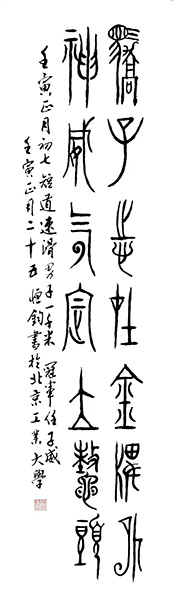 驕子志壯金
神威氣定立鼇頭
壬寅正月初七短道速滑男子一千米冠軍任子威
壬寅正月二十五恒鈞書於北京工業大學